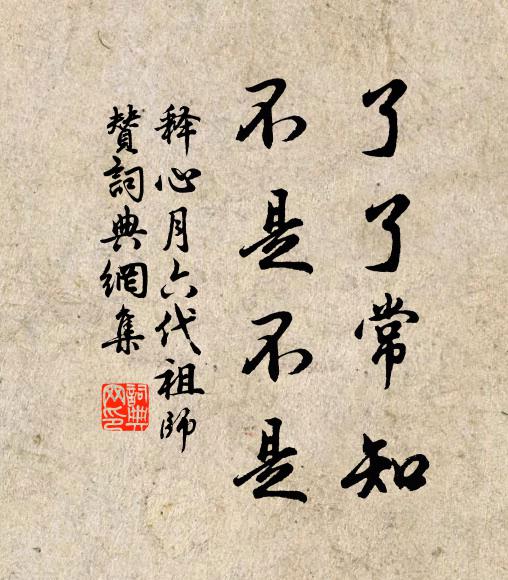 了了常知
不是不是
释心月六代祖師
贊詞典網集
詞典
网印